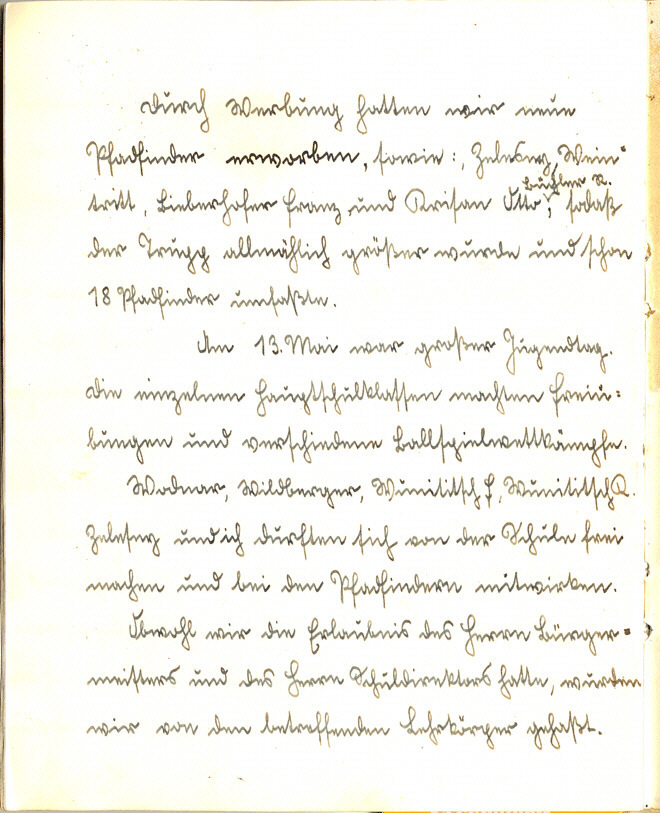 Durch Werbung hatten wir neue
Pfadfinder erworben, sowie:, Zelesny, Wein-
tritt, Bieberhofer Franz und Krisan Otto, Büchler R. sodaß
der Trupp allmählich größer wurde und schon
18 Pfadfinder umfaßte.
Am 13. Mai war großer Jugendtag.
Die einzelnen Hauptschulklassen machten Freiü-
bungen und verschiedene Ballspielwettkämpfe.
Wodnar, Wildberger, Wunititsch F, Wunititsch R.
Zelesny und ich durften sich von der Schule frei
machen und bei den Pfadfindern mitwirken.
Obwohl wir die Erlaubnis des Herrn Bürger-
meisters und des Herrn Schuldirektors hatte, wurden
wir von den betreffenden Lehrkörper gehaßt.